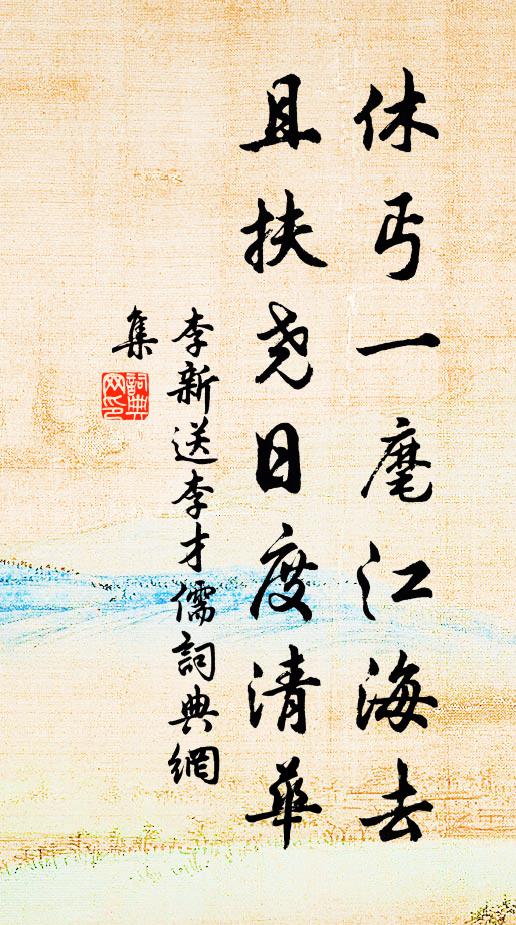 休丐一麾江海去
且扶尧日度清華
李新送李才儒詞典網
集
詞典
网印